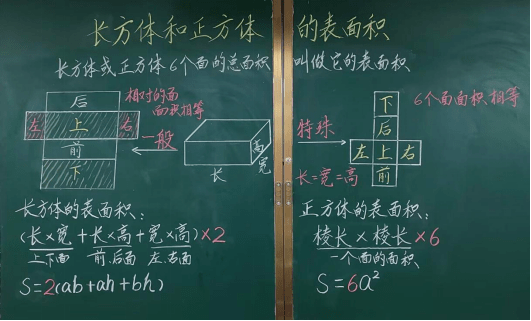 长方体和正方体的表面积
长方体或正方体6个面的总面积 叫做它的表面积
后
左 上 右
前
下
相对的面
面积相等
一般
长
宽
高
特殊
长=宽=高
下
后
左 上 右
前
6个面面积相等
长方体的表面积:
(长×宽+长×高+宽×高)×2
上下面 前.后面 左.右面
S=2(ab+ah+bh)
正方体的表面积:
棱长×棱长×6
一个面的面积
S=6a²